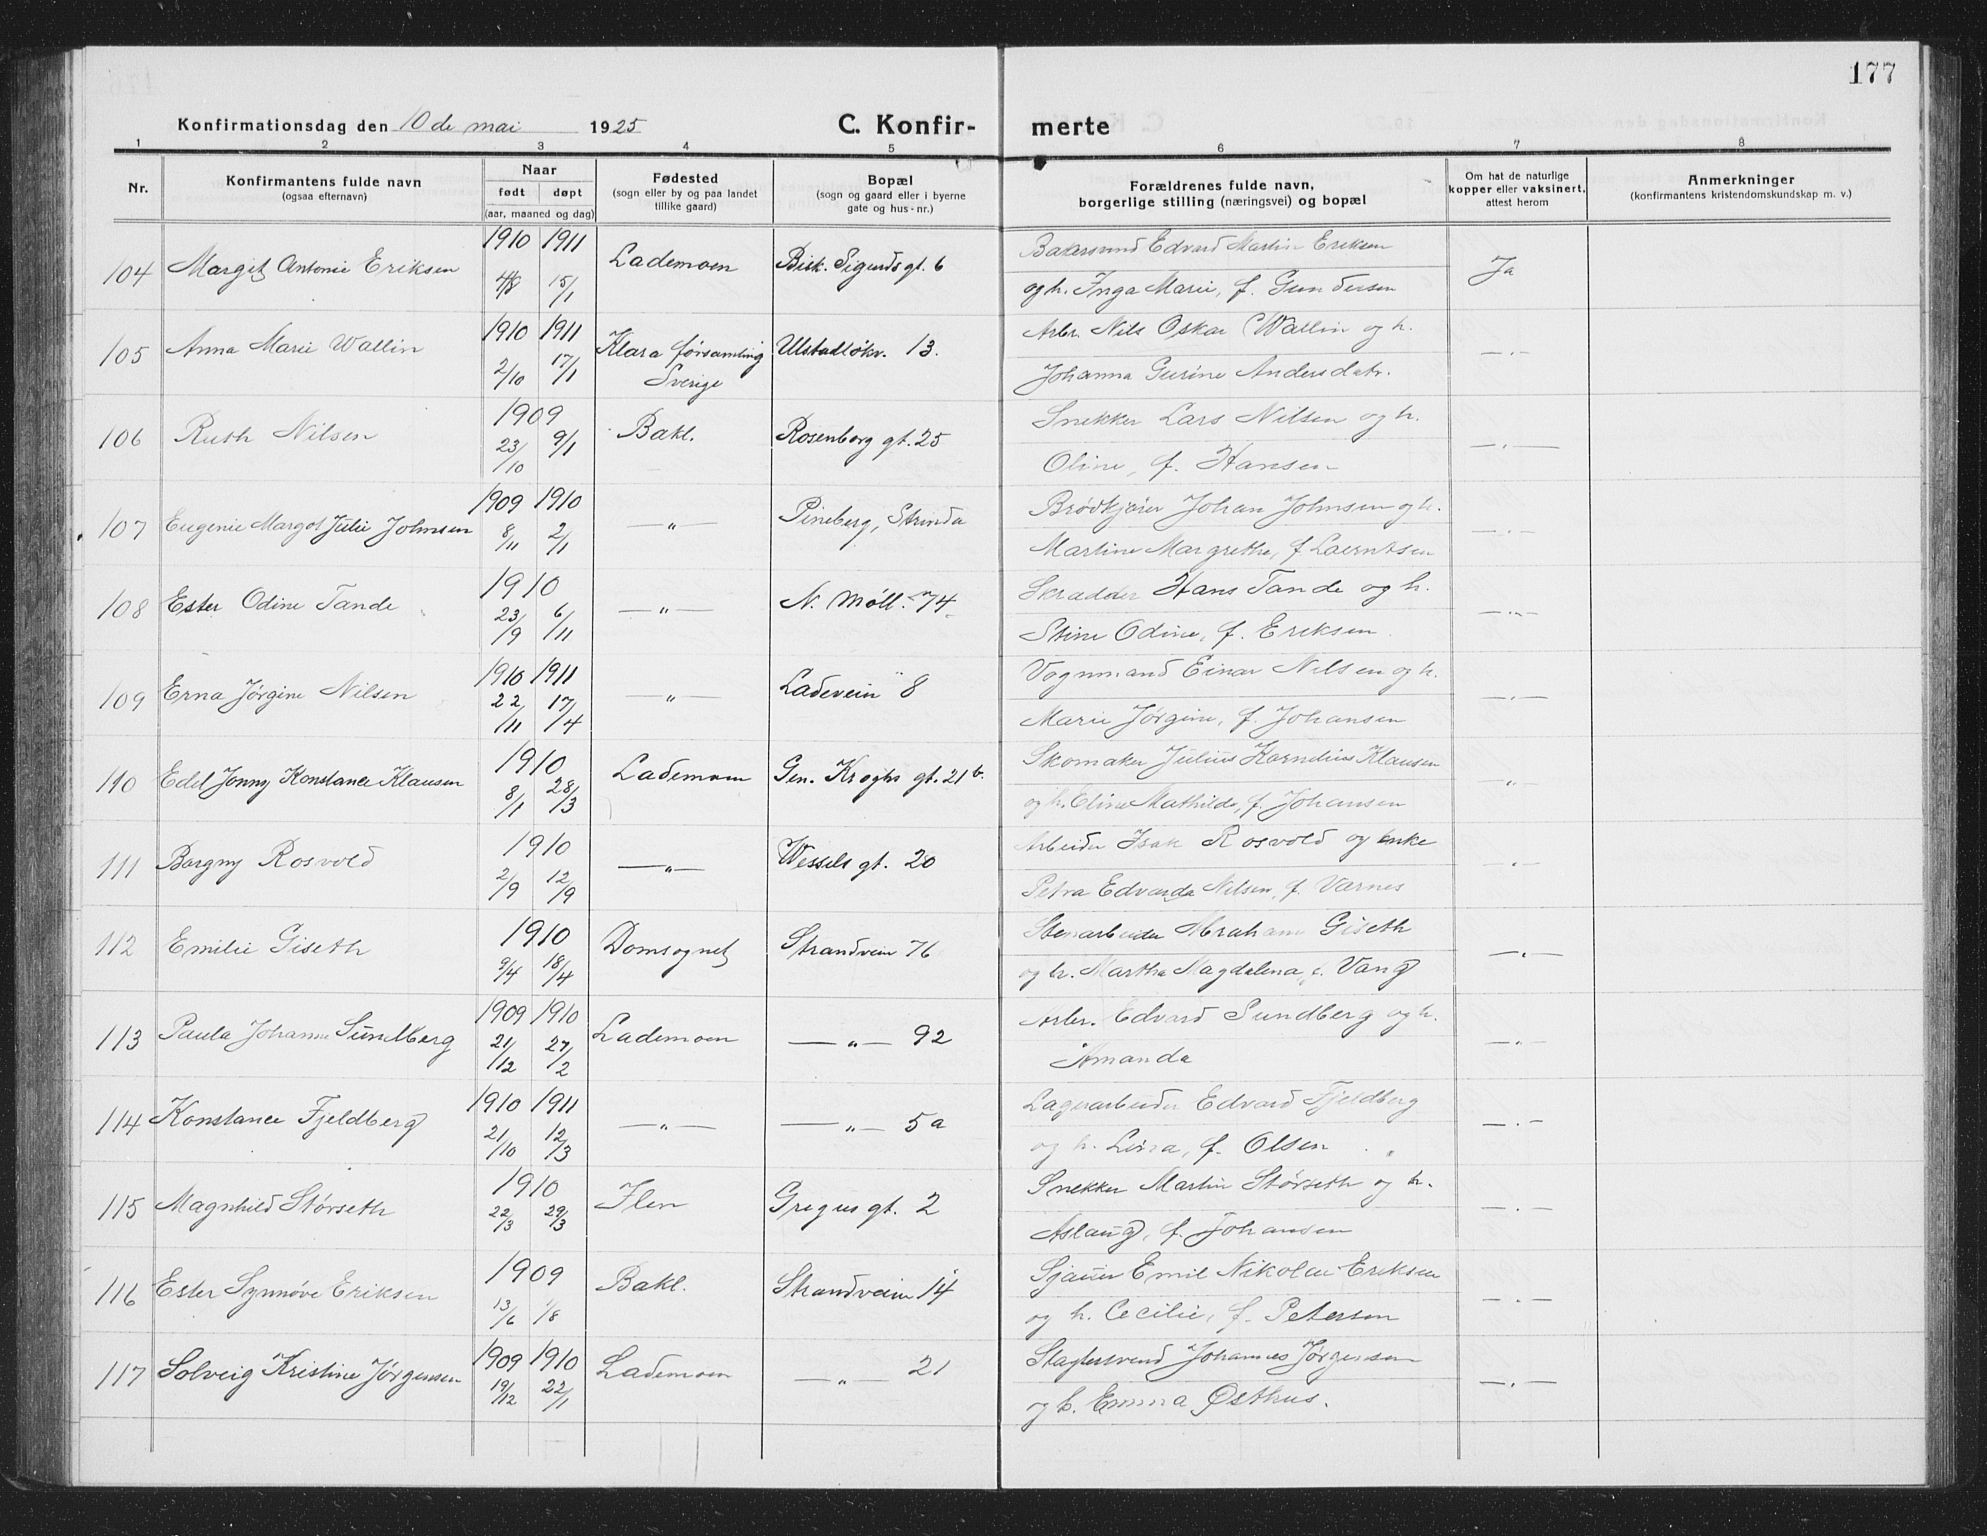 177
Konfirmationsdag den 10 de mai 1925 C. Konfir- merte
1 2 3 4 5 6 7 8
Nr. Konfirmantens fulde navn (ogsaa efternavn) Naar født døpt (aar, maaned og dag) Fødested (sogn eller by og paa landet tillike gaard) Bopæl (sogn og gaard eller i byerne gate og hus-nr.) Forældrenes fulde navn, borgerlige stilling (næringsvei) og bopæl Om hat de naturlige kopper eller vaksinert, attest herom Anmerkninger (konfirmantens kristendomskundskap m. v.)
104 Margit Antonie Eriksen 1910 4/8 1911 15/1 Lademoen Bisk. Sigurds gt. 6 Bakersvend Edvard Martin Eriksen Ja
og h. Inga Marie, f. Gundersen
105 Anna Marie Wallin 1910 2/10 1911 17/1 Klara församling Sverige Ulstadløkv. 13. Arbr. Nils Oskar Wallin og h. —〃—
Johanna Gurine Andersdatr.
106 Ruth Nilsen 1909 23/10 9/1 Bakl. Rosenborg gt. 25 Snekker Lars Nilsen og h. —〃—
Oline, f. Hansen
107 Eugenie Margot Julie Johnsen 1909 8/11 1910 2/1 —〃— Pineberg, Strinda Brødkjører Johan Johnsen og h. —〃—
Martine Margrethe, f. Laerntsen
108 Ester Odine Tande 1910 23/9 6/11 —〃— N. Møll. 74 Skradder Hans Tande og h. —〃—
Stine Odine, f. Eriksen
109 Erna Jørgine Nilsen 1910 22/11 1911 17/4 —〃— Ladevein 8 Vognmand Einar Nilsen og h. —〃—
Marie Jørgine, f. Johansen
110 Edel Jonny Konstance Klausen 1910 8/1 28/3 Lademoen Gen. Kroghs gt. 21 b. Skomaker Julius Kornelius Klausen —〃—
og h. Eline Mathilde, f. Johansen
111 Borgny Rosvold 1910 2/9 12/9 —〃— Wessels gt. 20 Arbeider Isak Rosvold og enke —〃—
Petra Edvarda Nilsen, f. Værnes
112 Emilie Giseth 1910 9/4 18/4 Domsognet Strandvein 76 Stenarbeider Abraham Giseth —〃—
og h. Martha Magdalena, f. Vang
113 Paula Johanne Sundberg 1909 21/12 1910 27/2 Lademoen —〃— 92 Arbr. Edvard Sundberg og h. —〃—
Amanda
114 Konstance Fjeldberg 1910 21/10 1911 12/3 —〃— —〃— 5a Lagerarbeider Edvard Fjeldberg —〃—
og h. Lovra, f. Olsen
115 Magnhild Størseth 1910 22/3 29/3 Ilen Gregus gt. 2 Snekker Martin Størseth og h. —〃—
Aslaug, f. Johansen
116 Ester Synnøve Eriksen 1909 13/6 1/8 Bakl. Strandvein 14 Sjauer Emil Nikolai Eriksen —〃—
og h. Cecilie, f. Petersen
117 Solveig Kristine Jørgensen 1909 19/12 1910 22/1 Lademoen —〃— 21 Slagtersvend Johannes Jørgensen —〃—
og h. Emma Østhus.